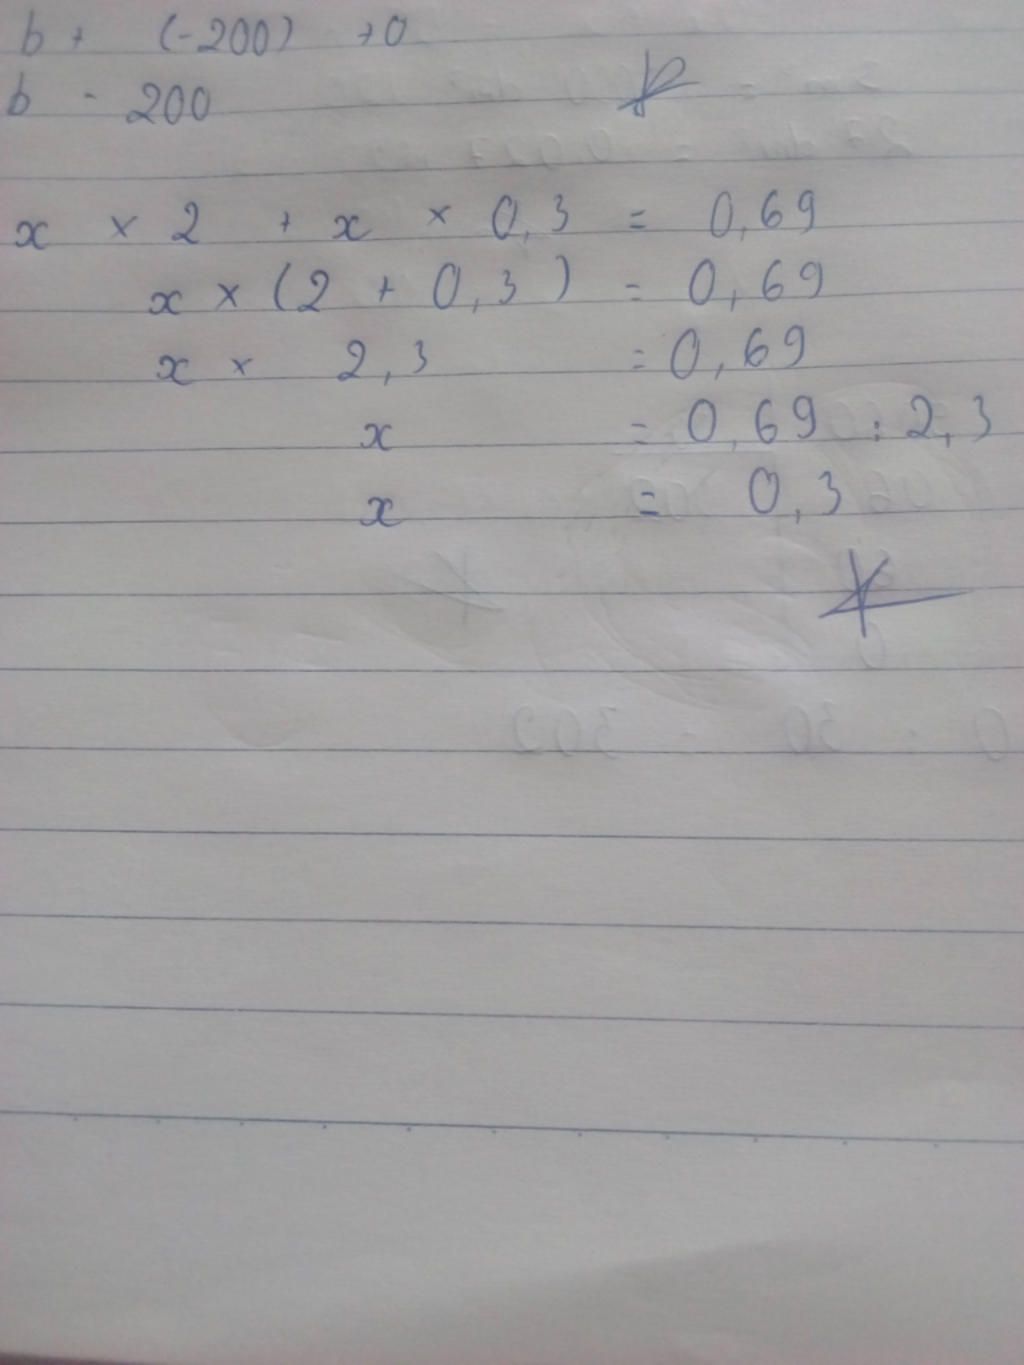 b + (-200) +0
b - 200
x × 2 + x × 0,3 = 0,69
x × (2 + 0,3) = 0,69
x × 2,3 = 0,69
x = 0,69 : 2,3
x = 0,3